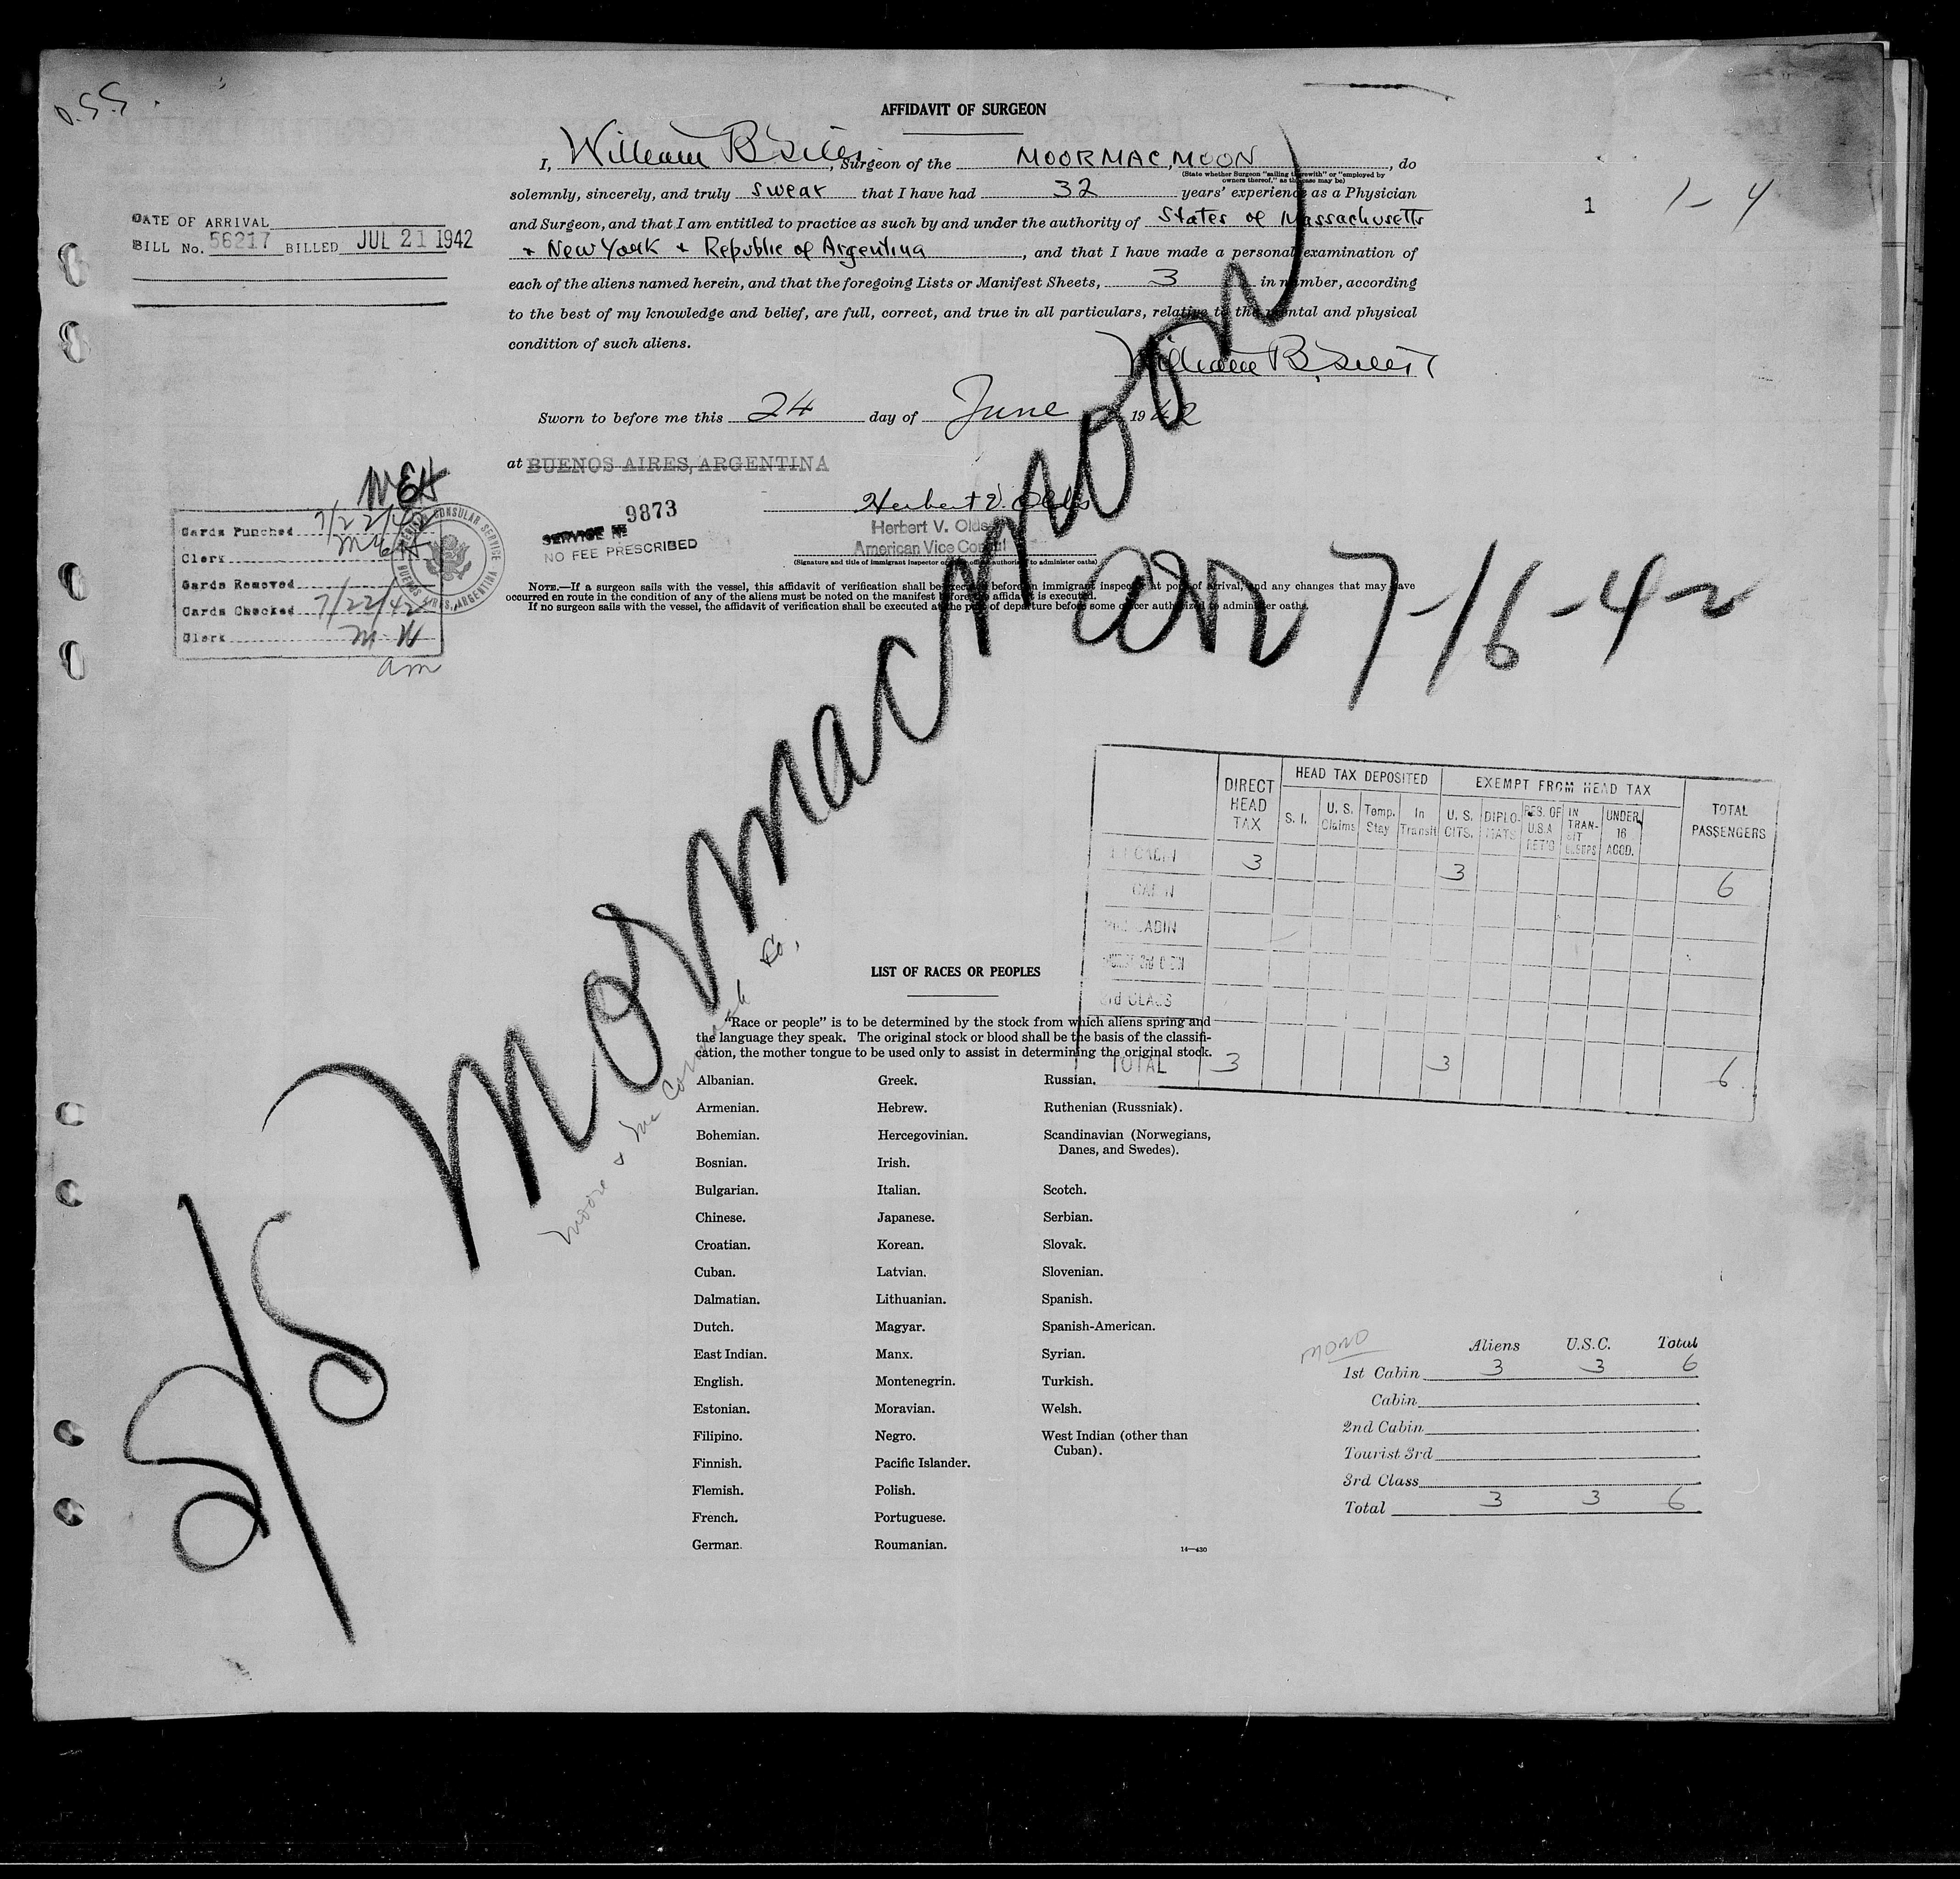 O.S.S.
AFFIDAVIT OF SURGEON
I, William B , Surgeon of the MOORMAC, MOON, do
(State whether Surgeon "sailing therewith" or "employed by
owners thereof," as the case may be)
solemnly, sincerely, and truly swear that I have had 32 years' experience as a Physician
and Surgeon, and that I am entitled to practice as such by and under the authority of States of Massachusetts
+ New York + Republic of Argentina, and that I have made a personal examination of
each of the aliens named herein, and that the foregoing Lists or Manifest Sheets, 3 in number, according
to the best of my knowledge and belief, are full, correct, and true in all particulars, relative to the mental and physical
condition of such aliens.
William B.
Sworn to before me this 24 day of June 1942
at BUENOS AIRES, ARGENTINA
1
1-4
DATE OF ARRIVAL
BILL No. 56217 BILLED JUL 21 1942
SERVICE № 9873
NO FEE PRESCRIBED
Herbert V. Olds
Herbert V. Olds
American Vice Consul
(Signature and title of immigrant inspector or other officer authorized to administer oaths)
NOTE.—If a surgeon sails with the vessel, this affidavit of verification shall be executed before an immigrant inspector at port of arrival, and any changes that may have
occurred en route in the condition of any of the aliens must be noted on the manifest before the affidavit is executed.
If no surgeon sails with the vessel, the affidavit of verification shall be executed at the port of departure before some officer authorized to administer oaths.
Cards Punched 7/22/42
Clerk
Cards Removed
Cards Checked 7/22/42
Clerk M H
am
AMERICAN CONSULAR SERVICE
BUENOS AIRES, ARGENTINA
S/S Mormacmoon
arr 7-16-42
Moore & McCormack Co.
DIRECT HEAD TAX
HEAD TAX DEPOSITED
EXEMPT FROM HEAD TAX
TOTAL PASSENGERS
S. I. U. S. Claims Temp. Stay In Transit U. S. CITS. DIPLOMATS RES. OF U.S.A RET'G IN TRANSIT UNDER 16 ACCD.
1st CABIN 3 3 6
CABIN
2nd CABIN
3rd CLASS
TOTAL 3 3 6
LIST OF RACES OR PEOPLES
"Race or people" is to be determined by the stock from which aliens spring and
the language they speak. The original stock or blood shall be the basis of the classifi-
cation, the mother tongue to be used only to assist in determining the original stock.
Albanian. Greek. Russian.
Armenian. Hebrew. Ruthenian (Russniak).
Bohemian. Hercegovinian. Scandinavian (Norwegians,
Danes, and Swedes).
Bosnian. Irish.
Bulgarian. Italian. Scotch.
Chinese. Japanese. Serbian.
Croatian. Korean. Slovak.
Cuban. Latvian. Slovenian.
Dalmatian. Lithuanian. Spanish.
Dutch. Magyar. Spanish-American.
East Indian. Manx. Syrian.
English. Montenegrin. Turkish.
Estonian. Moravian. Welsh.
Filipino. Negro. West Indian (other than
Cuban).
Finnish. Pacific Islander.
Flemish. Polish.
French. Portuguese.
German. Roumanian.
14—430
MONO
Aliens U.S.C. Total
1st Cabin 3 3 6
Cabin
2nd Cabin
Tourist 3rd
3rd Class
Total 3 3 6